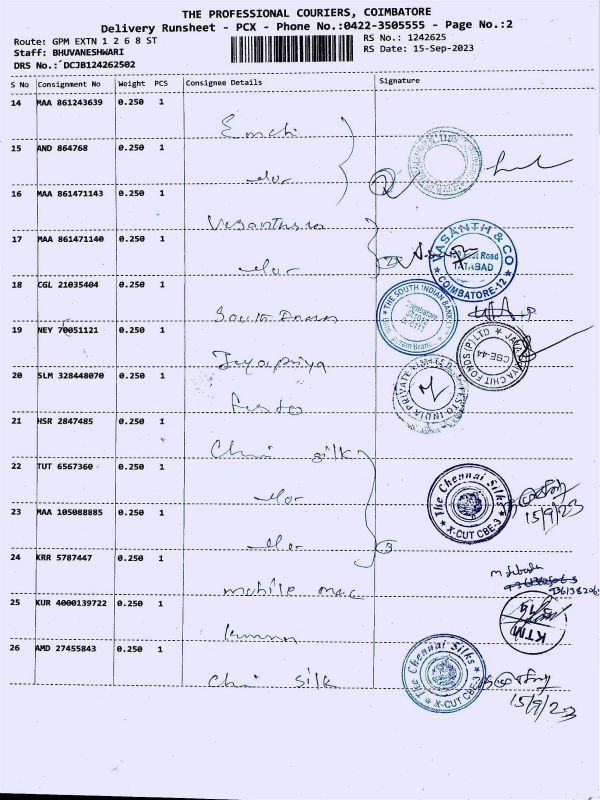 THE PROFESSIONAL COURIERS, COIMBATORE
Delivery Runsheet - PCX - Phone No.:0422-3505555 - Page No.:2
Route: GPM EXTN 1 2 6 8 ST
RS No.: 1242625
Staff: BHUVANESHWARI
RS Date: 15-Sep-2023
DRS No.: DCJB124262502
S No Consignment No Weight PCS Consignee Details Signature
14 MAA 861243639 0.250 1
15 AND 864768 0.250 1
16 MAA 861471143 0.250 1
VASANTH & CO
Road
TATABAD
COIMBATORE-12
17 MAA 861471140 0.250 1
18 CGL 21035404 0.250 1
THE SOUTH INDIAN BANK
South Indian
19 NEY 70051121 0.250 1
CHIT FUNDS (P) LTD
CBE-44
Jayapriya
20 SLM 328448070 0.250 1
FESTO INDIA PRIVATE LIMITED
festo
21 HSR 2847485 0.250 1
silk
22 TUT 6567360 0.250 1
The Chennai Silks
X-CUT CBE-3
15/9/23
23 MAA 105088885 0.250 1
3
24 KRR 5787447 0.250 1
mobile mac
25 KUR 4000139722 0.250 1
KTM
26 AMD 27455843 0.250 1
The Chennai Silks
X-CUT CBE-3
silk
15/9/23